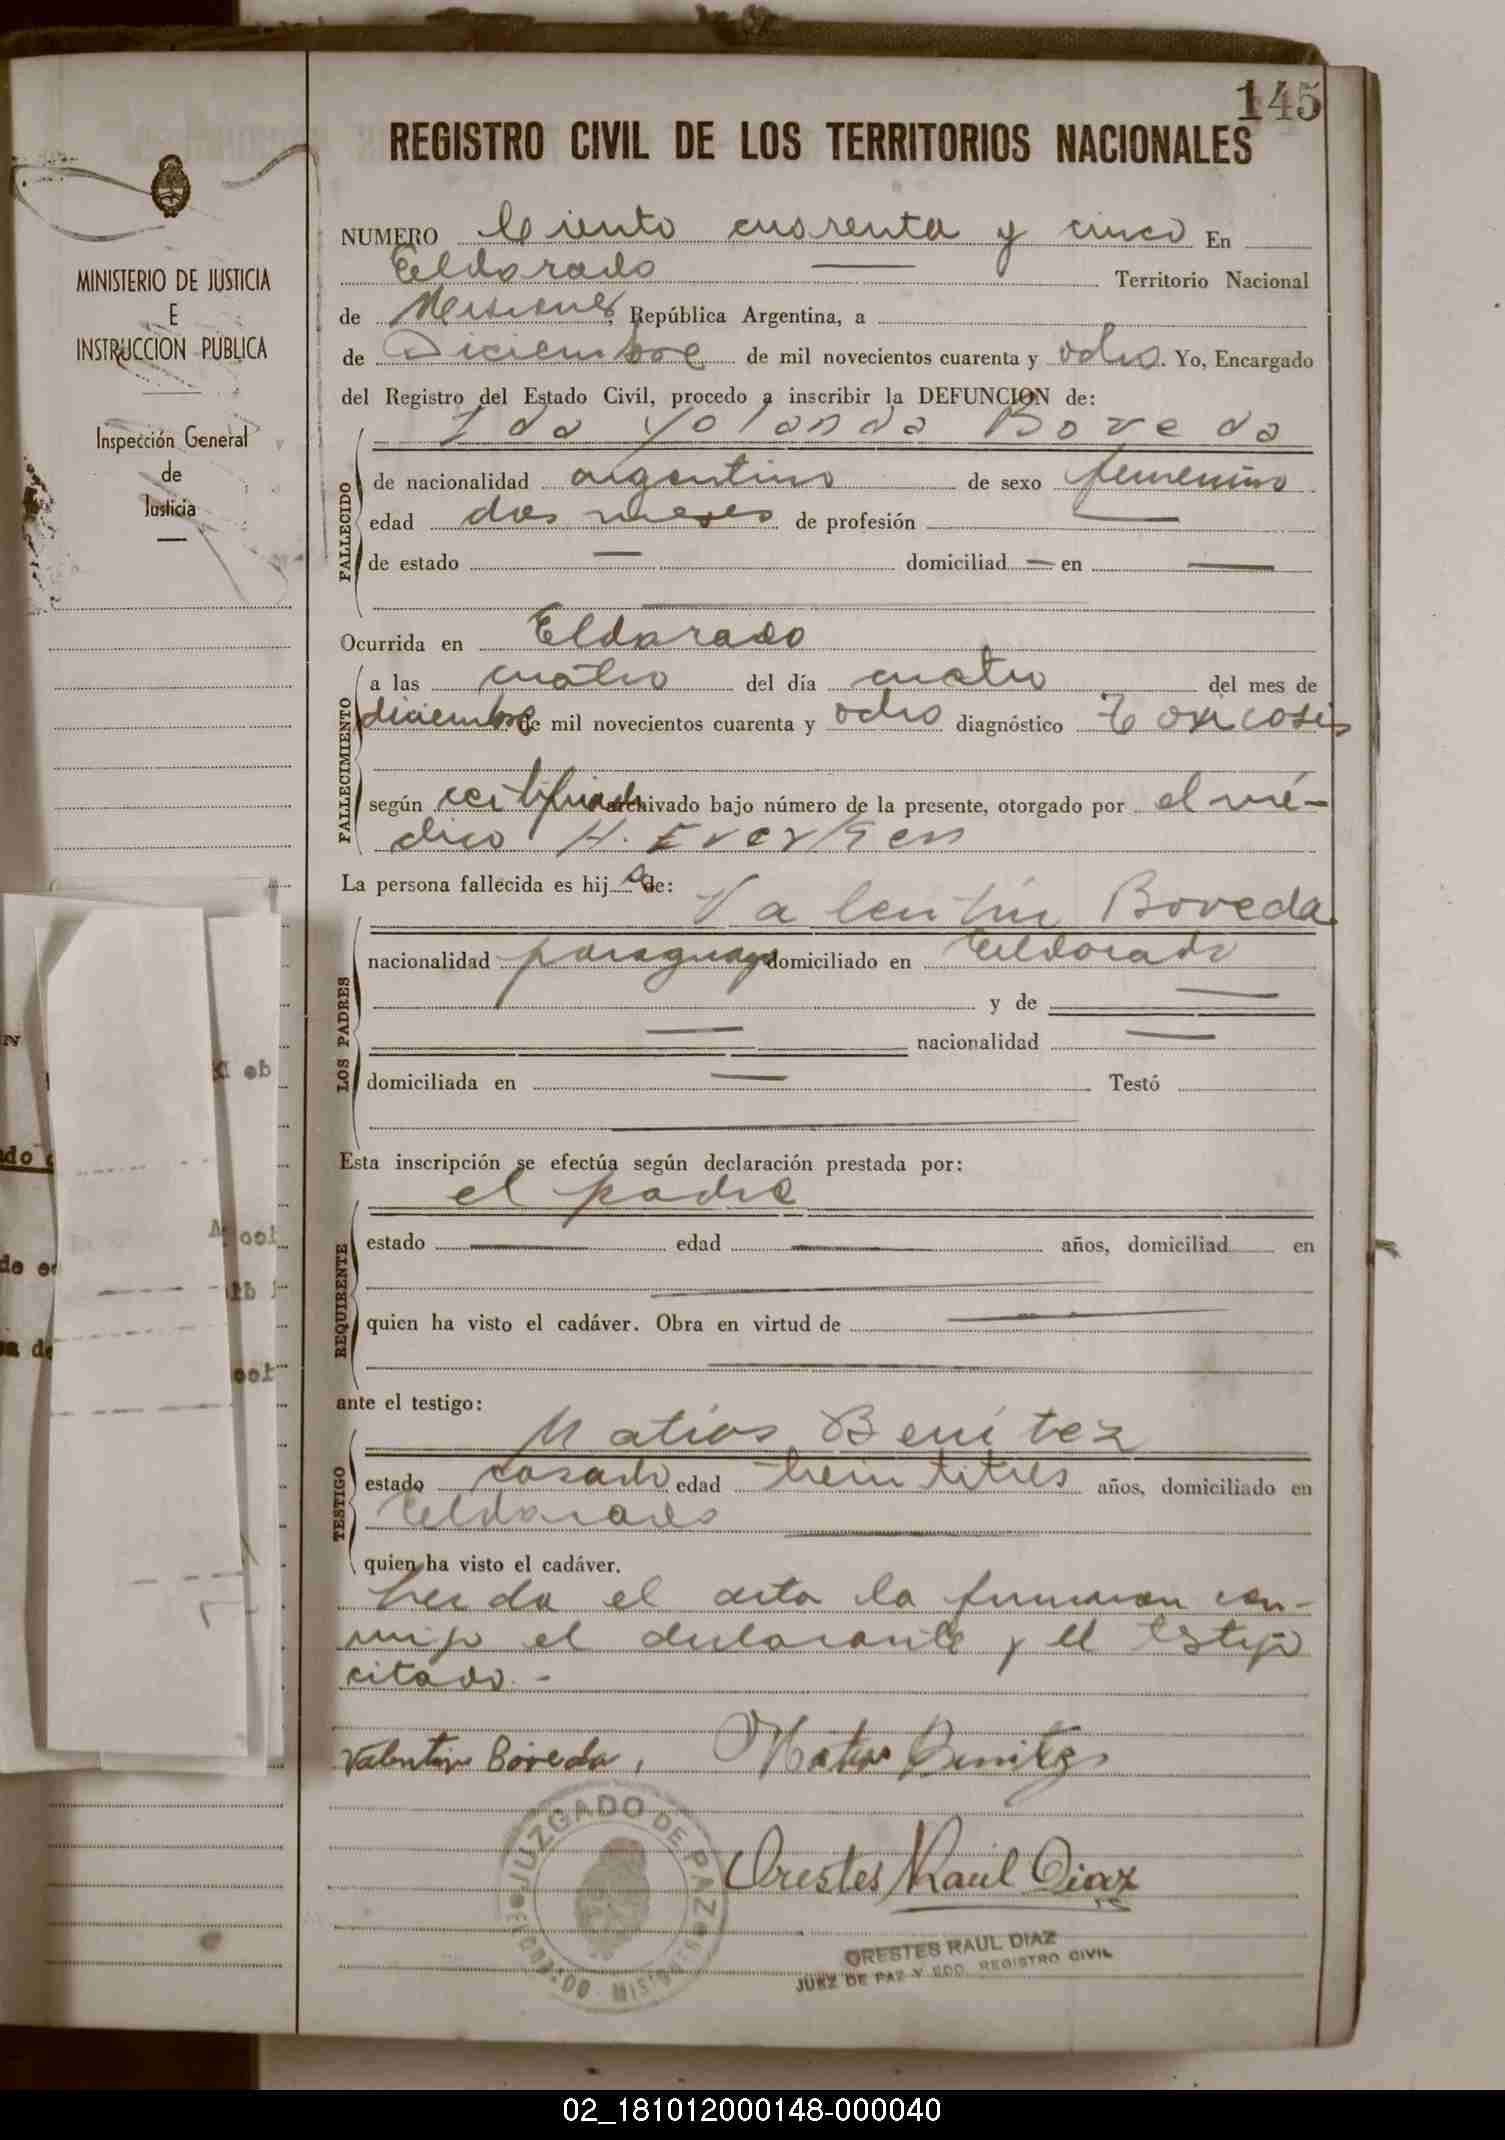 145
REGISTRO CIVIL DE LOS TERRITORIOS NACIONALES
MINISTERIO DE JUSTICIA
E
INSTRUCCION PUBLICA
Inspección General
de
Justicia
NUMERO Ciento cuarenta y cinco En
Eldorado Territorio Nacional
de Misiones, República Argentina, a
de Diciembre de mil novecientos cuarenta y ocho. Yo, Encargado
del Registro del Estado Civil, procedo a inscribir la DEFUNCION de:
Ida Yolanda Boveda
FALLECIDO
de nacionalidad argentina de sexo femenino
edad dos meses de profesión —
de estado — domiciliad — en —
Ocurrida en Eldorado
FALLECIMIENTO
a las cuatro del día cuatro del mes de
diciembre de mil novecientos cuarenta y ocho diagnóstico Toxicosis
según certificado archivado bajo número de la presente, otorgado por el mé-
dico H.
La persona fallecida es hij a de:
Valentín Boveda
LOS PADRES
nacionalidad paraguayo domiciliado en Eldorado
y de —
— nacionalidad —
domiciliada en — Testó
Esta inscripción se efectúa según declaración prestada por:
el padre
REQUIRENTE
estado — edad — años, domiciliad en
quien ha visto el cadáver. Obra en virtud de —
ante el testigo:
Matias Benitez
TESTIGO
estado casado edad treintitres años, domiciliado en
Eldorado
quien ha visto el cadáver.
Leida el acta la firmaron con-
migo el declarante y el testigo
citado.-
Valentin Boveda, Matias Benitez
JUZGADO DE PAZ
ELDORADO - MISIONES
Orestes Raúl Diaz
ORESTES RAUL DIAZ
JUEZ DE PAZ Y ECD. REGISTRO CIVIL
02_181012000148-000040